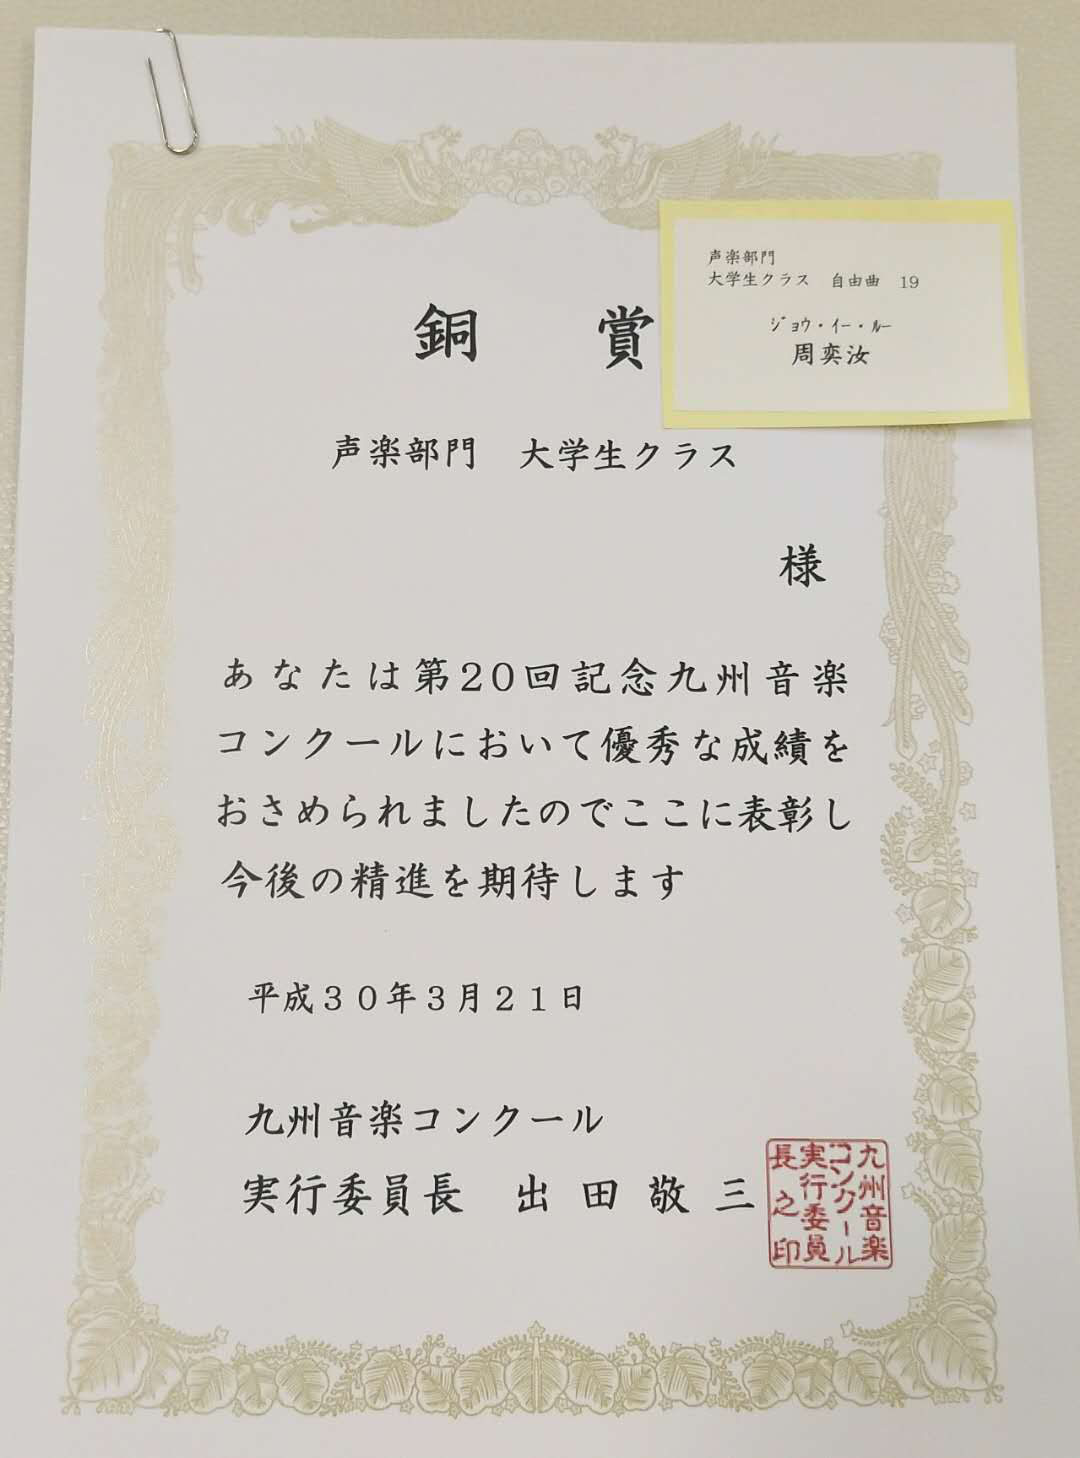 銅 賞
声楽部門
大学生クラス 自由曲 19
ジョウ・イー・ルー
周奕汝
声楽部門 大学生クラス
様
あなたは第20回記念九州音楽
コンクールにおいて優秀な成績を
おさめられましたのでここに表彰し
今後の精進を期待します
平成30年3月21日
九州音楽コンクール
実行委員長 出田敬三
九州音楽
コンクール
実行委員
長之印